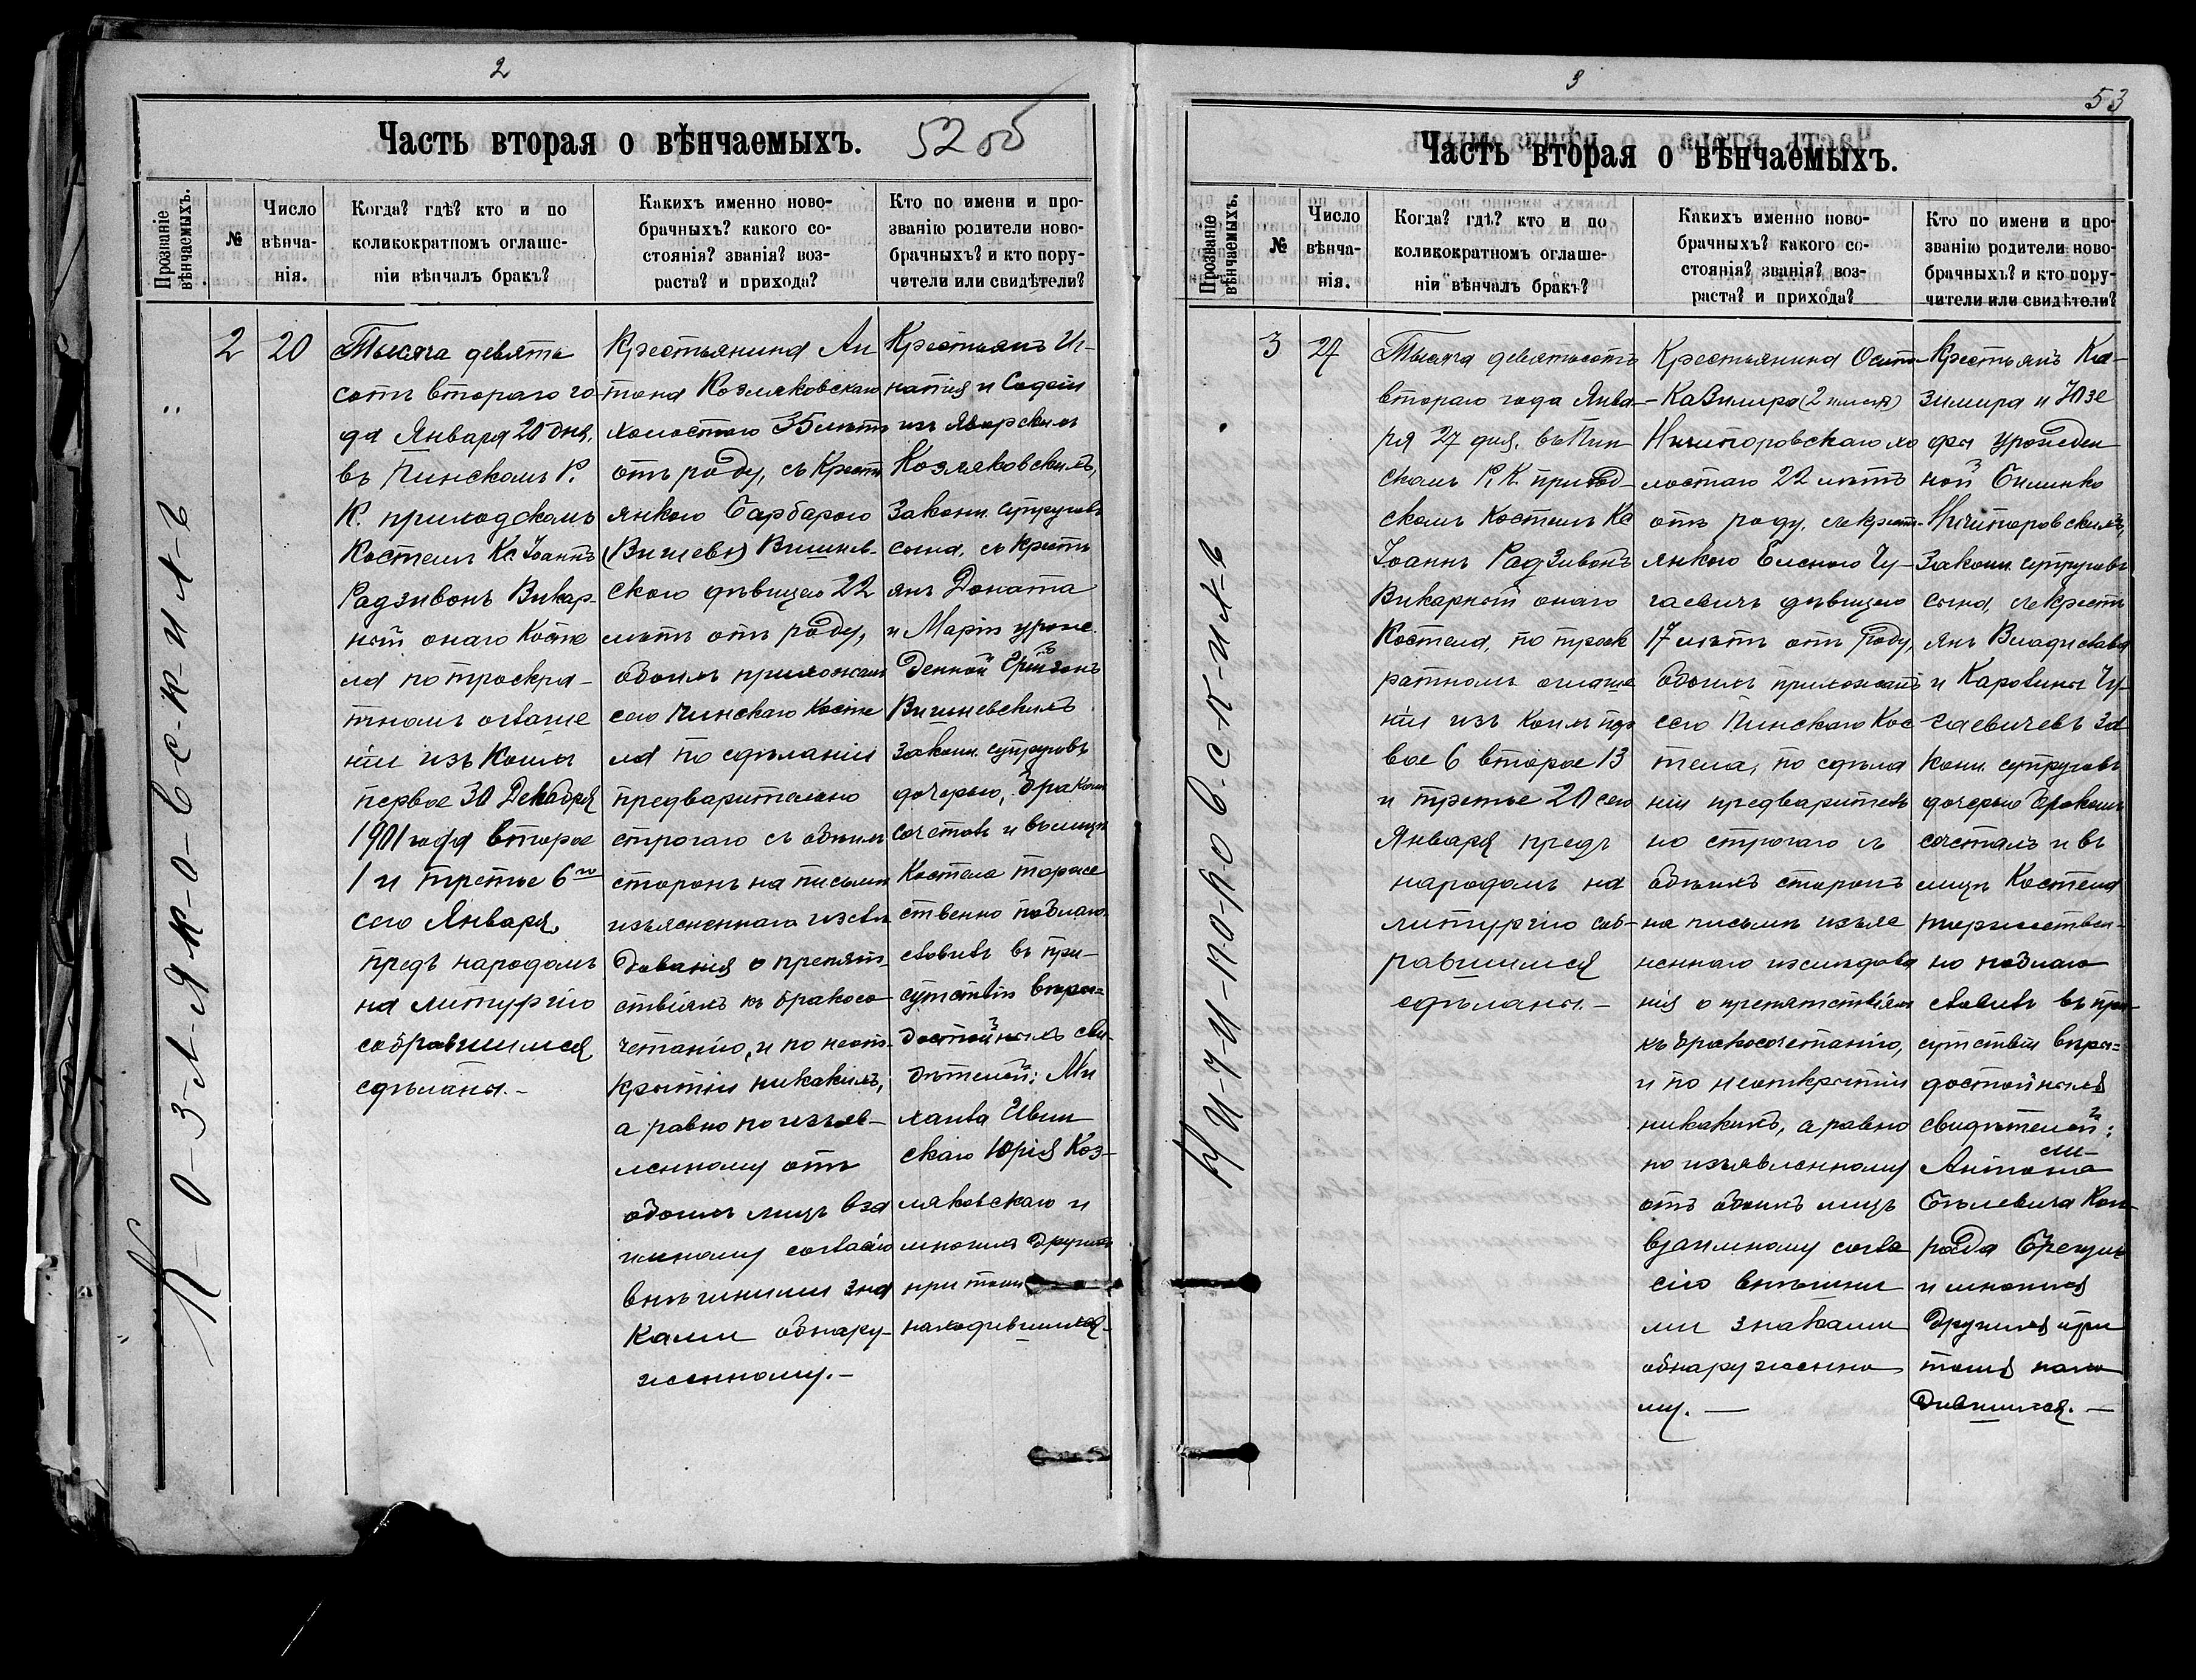 2
Часть вторая о вѣнчаемыхъ.
52 об
Прозваніе вѣнчаемыхъ.
№
Число вѣнча-нія.
Когда? гдѣ? кто и по
коликократномъ оглаше-
ніи вѣнчалъ бракъ?
Какихъ именно ново-
брачныхъ? какого со-
стоянія? званія? воз-
раста? и прихода?
Кто по имени и про-
званію родители ново-
брачныхъ? и кто пору-
чители или свидѣтели?
К-О-З-Л-Я-К-О-В-С-К-И-Й
2
20
Тысяча девять
сотъ втораго го
да Января 20 дня,
въ Пинскомъ Р.
К. приходскомъ
Костелѣ Кс. Іоаннъ
Радзивонъ Викар-
ный онаго Косте
ла по троекра-
тномъ оглаше
ніи изъ коихъ
первое 30 Декабря
1901 года второе
1 и третье 6го
сего Января,
предъ народомъ
на литургію
собравшимся
сдѣланы.-
Крестьянина Ан
тона Козляковскаго
холостаго 35 лѣтъ
отъ роду, съ Крестъ
янкою Барбарою
(Вишевъ) Вишнев-
скою дѣвицею 22
лѣтъ отъ роду,
обоихъ прихожанъ
сего Пинскаго Косте
ла по сдѣланіи
предварительно
строгаго съ обѣихъ
сторонъ на письмѣ
изъясненнаго изслѣ
дованія о препят-
ствіяхъ къ бракосо
четанію, и по неот-
крытіи никакихъ,
а равно по изъяв-
ленному отъ
обоихъ лицъ вза
имному согласію
внѣшними зна
ками обнару-
женному.-
Крестьянъ Иг-
натія и Софіи
изъ Яворскихъ
Козляковскихъ,
Законн. супруговъ
сына, съ крестъ
янъ Доната
и Маріи урож
денной
Вишневскихъ
законн. супруговъ
дочерью, бракомъ
сочеталъ и въ лицѣ
Костела торже
ственно поблаго
словилъ въ при-
сутствіи вѣро=
достойныхъ сви-
дѣтелей: Ми
хаила
скаго Юрія Коз-
ляковскаго и
многихъ другихъ
при томъ
находившихся-
3
53
Часть вторая о вѣнчаемыхъ.
Прозваніе вѣнчаемыхъ.
№
Число вѣнча-нія.
Когда? гдѣ? кто и по
коликократномъ оглаше-
ніи вѣнчалъ бракъ?
Какихъ именно ново-
брачныхъ? какого со-
стоянія? званія? воз-
раста? и прихода?
Кто по имени и про-
званію родители ново-
брачныхъ? и кто пору-
чители или свидѣтели?
Н-И-Ч-И-П-О-Р-О-В-С-К-І-Й
3
27
Тысяча девятьсотъ
втораго года Янва-
ря 27 дня, въ Пин
скомъ Р. К. приход-
скомъ Костелѣ Кс
Іоаннъ Радзивонъ
Викарный онаго
Костела, по троек
ратномъ оглаше
ніи изъ коихъ пер
вое 6 второе 13
и третье 20 сего
Января предъ
народомъ на
литургію соб-
равшимся
сдѣланы.-
Крестьянина Осипа-
Казимира (2 имени)
Ничипоровскаго хо
лостаго 22 лѣтъ
отъ роду, съ крестъ-
янкою Еленою Чу-
гаевичъ дѣвицею
17 лѣтъ отъ роду,
обоихъ прихожанъ
сего Пинскаго Кос-
тела, по сдѣла
ніи предваритель
но строгаго съ
обѣихъ сторонъ
на письмѣ изъяс
неннаго изслѣдова
нія о препятствіяхъ
къ бракосочетанію,
и по неоткрытіи
никакихъ, а равно
по изъявленному
отъ обоихъ лицъ
взаимному согла
сію внѣшни
ми знаками
обнаруженно
му.-
Крестьянъ Ка-
зимира и Юзе
фы урожден
ной Билинко
Ничипоровскихъ,
Законн. супруговъ
сына, съ крестъ
янъ Владислава
и Каролины Чу-
гаевичевъ за
конн. супруговъ
дочерью бракомъ
сочеталъ и въ
лицѣ Костела
торжествен-
но поблаго
словилъ въ при-
сутствіи вѣро=
достойныхъ
свидѣтелей:
Антона
Кон-
рада
и многихъ
другихъ при
томъ нахо
дившихся.-